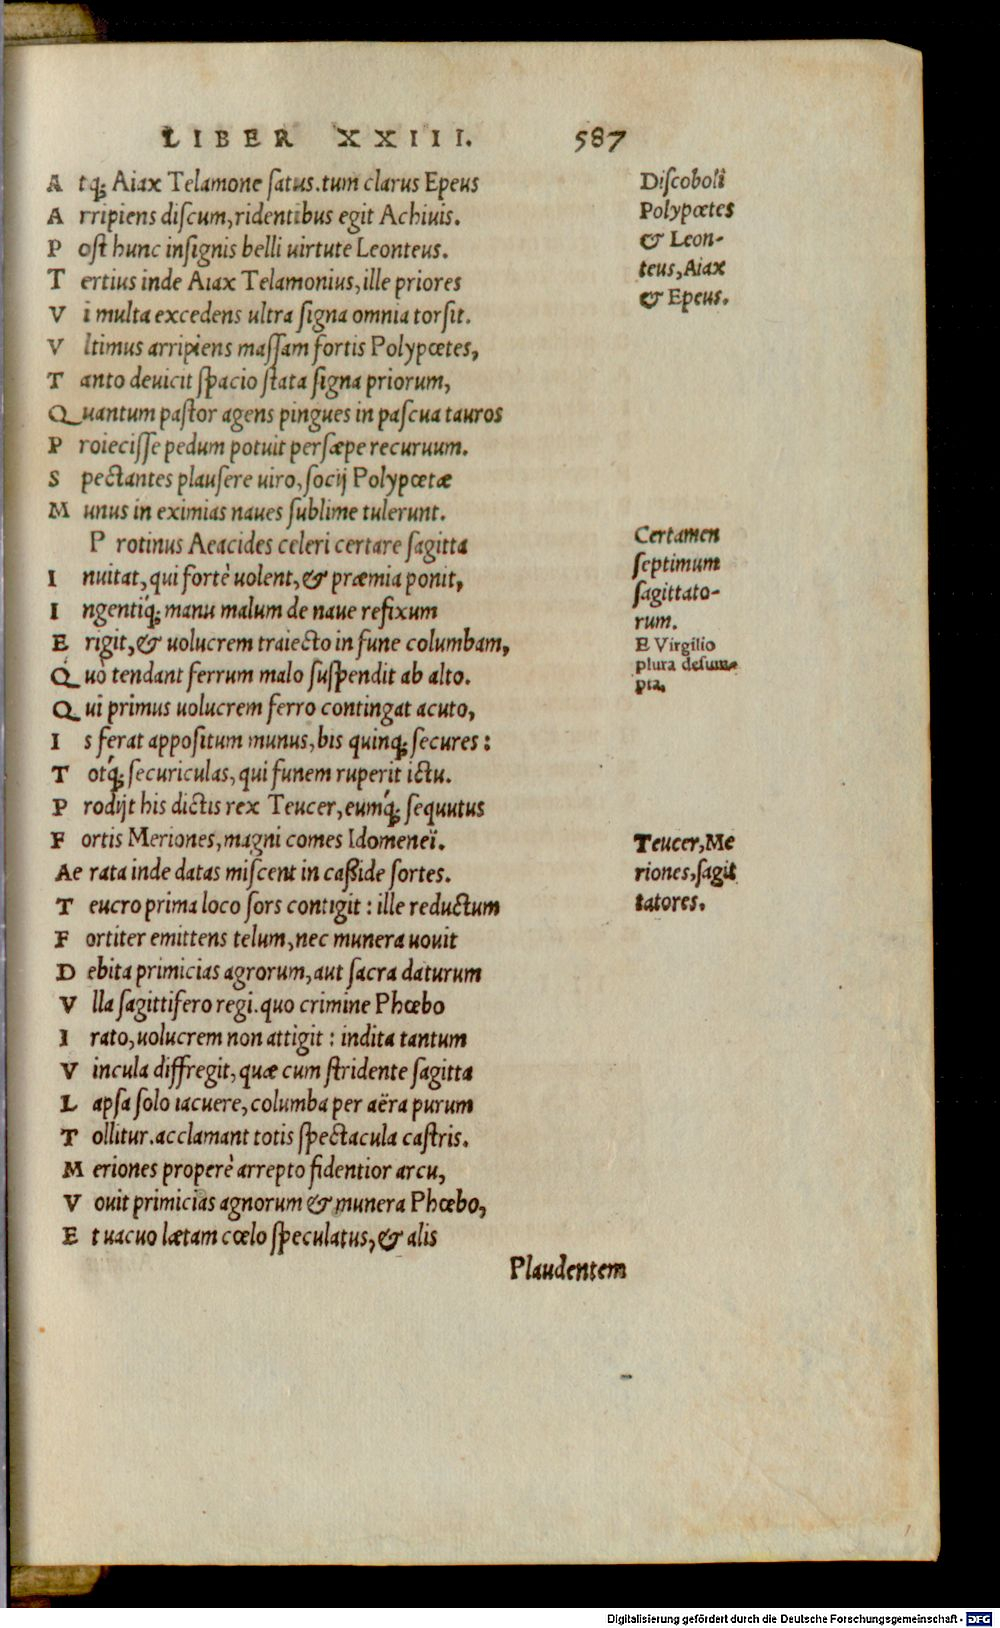 LIBER XXIII. 587
Atq; Aiax Telamone ſatus. tum clarus Epeus
Arripiens diſcum, ridentibus egit Achiuis.
Poſt hunc inſignis belli uirtute Leonteus.
Tertius inde Aiax Telamonius, ille priores
Vi multa excedens ultra ſigna omnia torſit.
Vltimus arripiens maſſam fortis Polypœtes,
Tanto deuicit ſpacio ſtata ſigna priorum,
Quantum paſtor agens pingues in paſcua tauros
Proieciſſe pedum potuit perſæpe recuruum.
Spectantes plauſere uiro, ſocij Polypœtæ
Munus in eximias naues ſublime tulerunt.
Protinus Aeacides celeri certare ſagitta
Inuitat, qui fortè uolent, & præmia ponit,
Ingentiq́; manu malum de naue refixum
Erigit, & uolucrem traiecto in fune columbam,
Quò tendant ferrum malo ſuſpendit ab alto.
Qui primus uolucrem ferro contingat acuto,
Is ferat appoſitum munus, bis quinq; ſecures:
Totq́; ſecuriculas, qui funem ruperit ictu.
Prodijt his dictis rex Teucer, eumq́; ſequutus
Fortis Meriones, magni comes Idomeneï.
Aerata inde datas miſcent in caßide ſortes.
Teucro prima loco ſors contigit: ille reductum
Fortiter emittens telum, nec munera uouit
Debita primicias agrorum, aut ſacra daturum
Vlla ſagittifero regi. quo crimine Phœbo
Irato, uolucrem non attigit: indita tantum
Vincula diffregit, quæ cum ſtridente ſagitta
Lapſa ſolo iacuere, columba per aëra purum
Tollitur. acclamant totis ſpectacula caſtris.
Meriones properè arrepto fidentior arcu,
Vouit primicias agnorum & munera Phœbo,
Et uacuo lætam cœlo ſpeculatus, & alis
Plaudentem
Diſcoboli
Polypœtes
& Leon-
teus, Aiax
& Epeus.
Certamen
ſeptimum
ſagittato-
rum.
E Virgilio
plura deſum-
pta.
Teucer, Me
riones, ſagit
tatores.
Digitalisierung gefördert durch die Deutsche Forschungsgemeinschaft - DFG